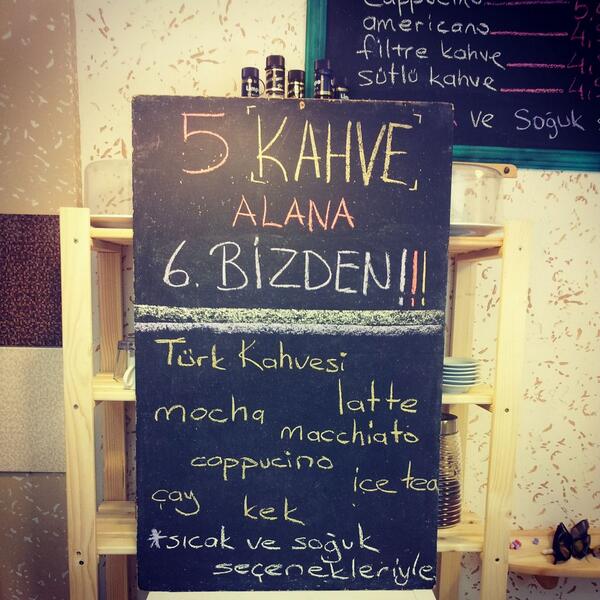 cappucino
americano
filtre kahve
sütlü kahve
ve Soğuk
5 [KAHVE]
ALANA
6. BİZDEN!!!
Türk Kahvesi
latte
mocha
macchiato
cappucino
ice tea
çay
kek
*sıcak ve soğuk
seçenekleriyle